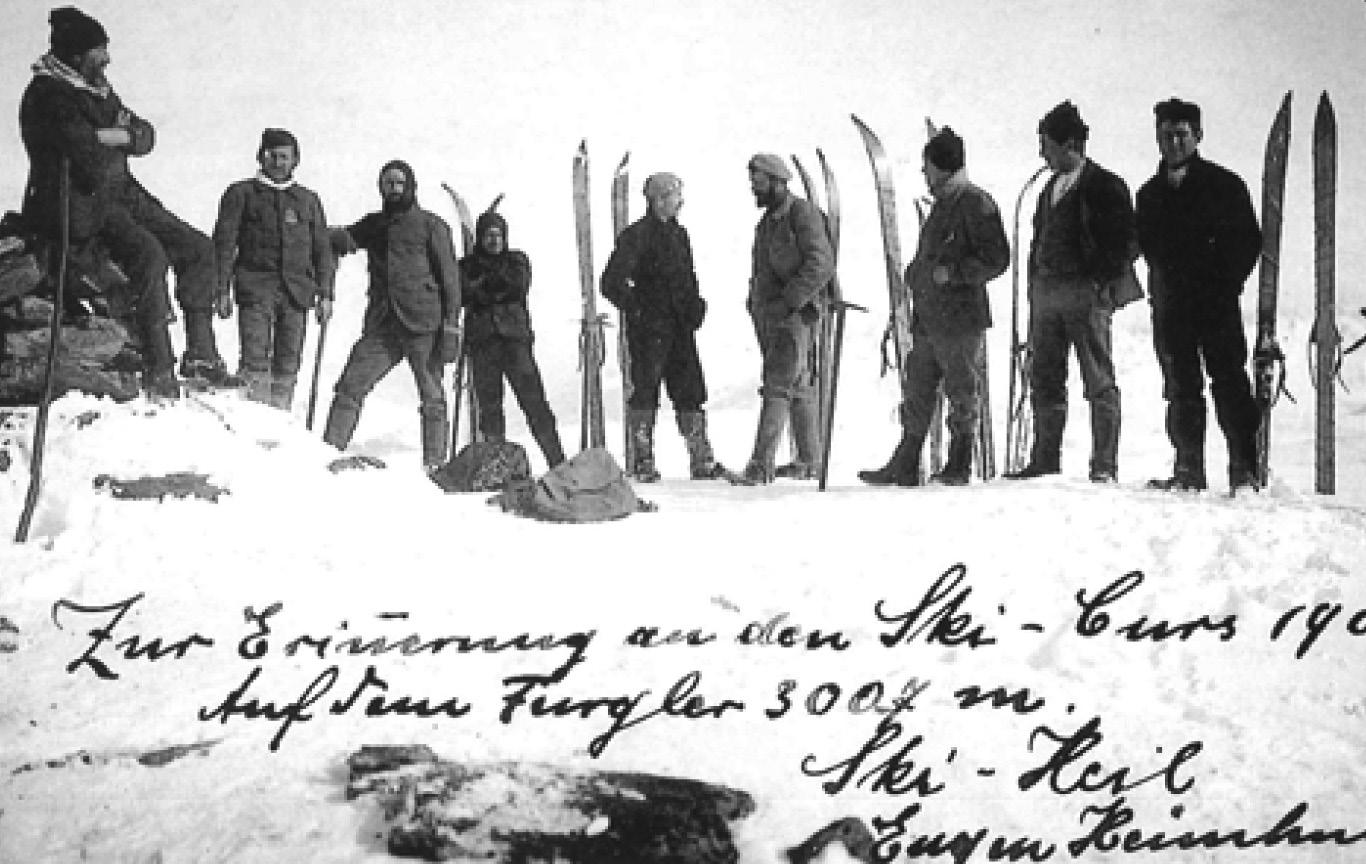 Zur Erinnerung an den Ski-Curs 190
Auf dem Furgler 3007 m.
Ski-Heil
Eugen